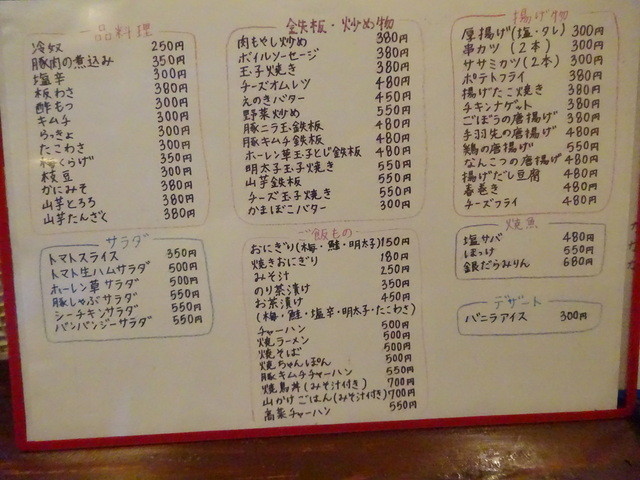 一品料理
冷奴 250円
豚肉の煮込み 350円
塩辛 300円
板わさ 380円
酢もつ 380円
キムチ 300円
らっきょ 300円
たこわさ 300円
梅くらげ 350円
枝豆 300円
かにみそ 380円
山芋とろろ 380円
山芋たんざく 380円
サラダ
トマトスライス 350円
トマト生ハムサラダ 500円
ホーレン草サラダ 500円
豚しゃぶサラダ 550円
シーチキンサラダ 550円
バンバンジーサラダ 550円
鉄板・炒め物
肉もやし炒め 380円
ボイルソーセージ 380円
玉子焼き 380円
チーズオムレツ 480円
えのきバター 450円
野菜炒め 550円
豚ニラ玉鉄板 480円
豚キムチ鉄板 480円
ホーレン草玉子とじ鉄板 480円
明太子玉子焼き 550円
山芋鉄板 550円
チーズ玉子焼き 550円
かまぼこバター 300円
ご飯もの
おにぎり(梅・鮭・明太子)150円
焼きおにぎり 180円
みそ汁 250円
のり茶漬け 350円
お茶漬け 450円
(梅・鮭・塩辛・明太子・たこわさ)
チャーハン 500円
焼ラーメン 500円
焼そば 500円
焼ちゃんぽん 500円
豚キムチチャーハン 550円
焼鳥丼(みそ汁付き) 700円
山かけごはん(みそ汁付き)700円
高菜チャーハン 550円
揚げ物
厚揚げ(塩・タレ) 300円
串カツ(2本) 300円
ササミカツ(2本) 300円
ポテトフライ 380円
揚げたこ焼き 380円
チキンナゲット 380円
ごぼうの唐揚げ 380円
手羽先の唐揚げ 480円
鶏の唐揚げ 550円
なんこつの唐揚げ 480円
揚げだし豆腐 480円
春巻き 480円
チーズフライ 480円
焼魚
塩サバ 480円
ほっけ 550円
銀だらみりん 680円
デザート
バニラアイス 300円